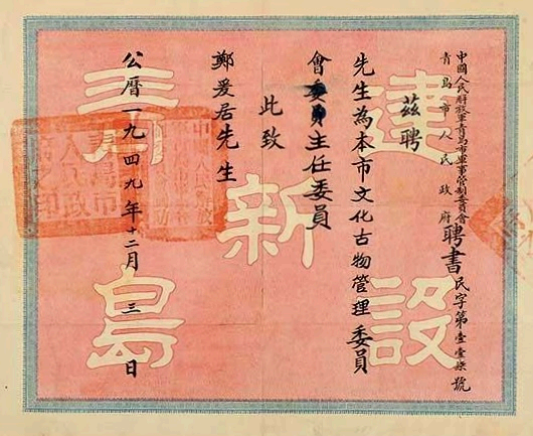 中國人民解放軍青島市軍事管制委員會
青島市人民政府
聘書 民字第壹壹柒號
茲聘
先生為本市文化古物管理委員
會委員主任委員
此致
鄭爰居先生
公曆一九四九年十二月三日
建設新青島
青島市人民政府之印